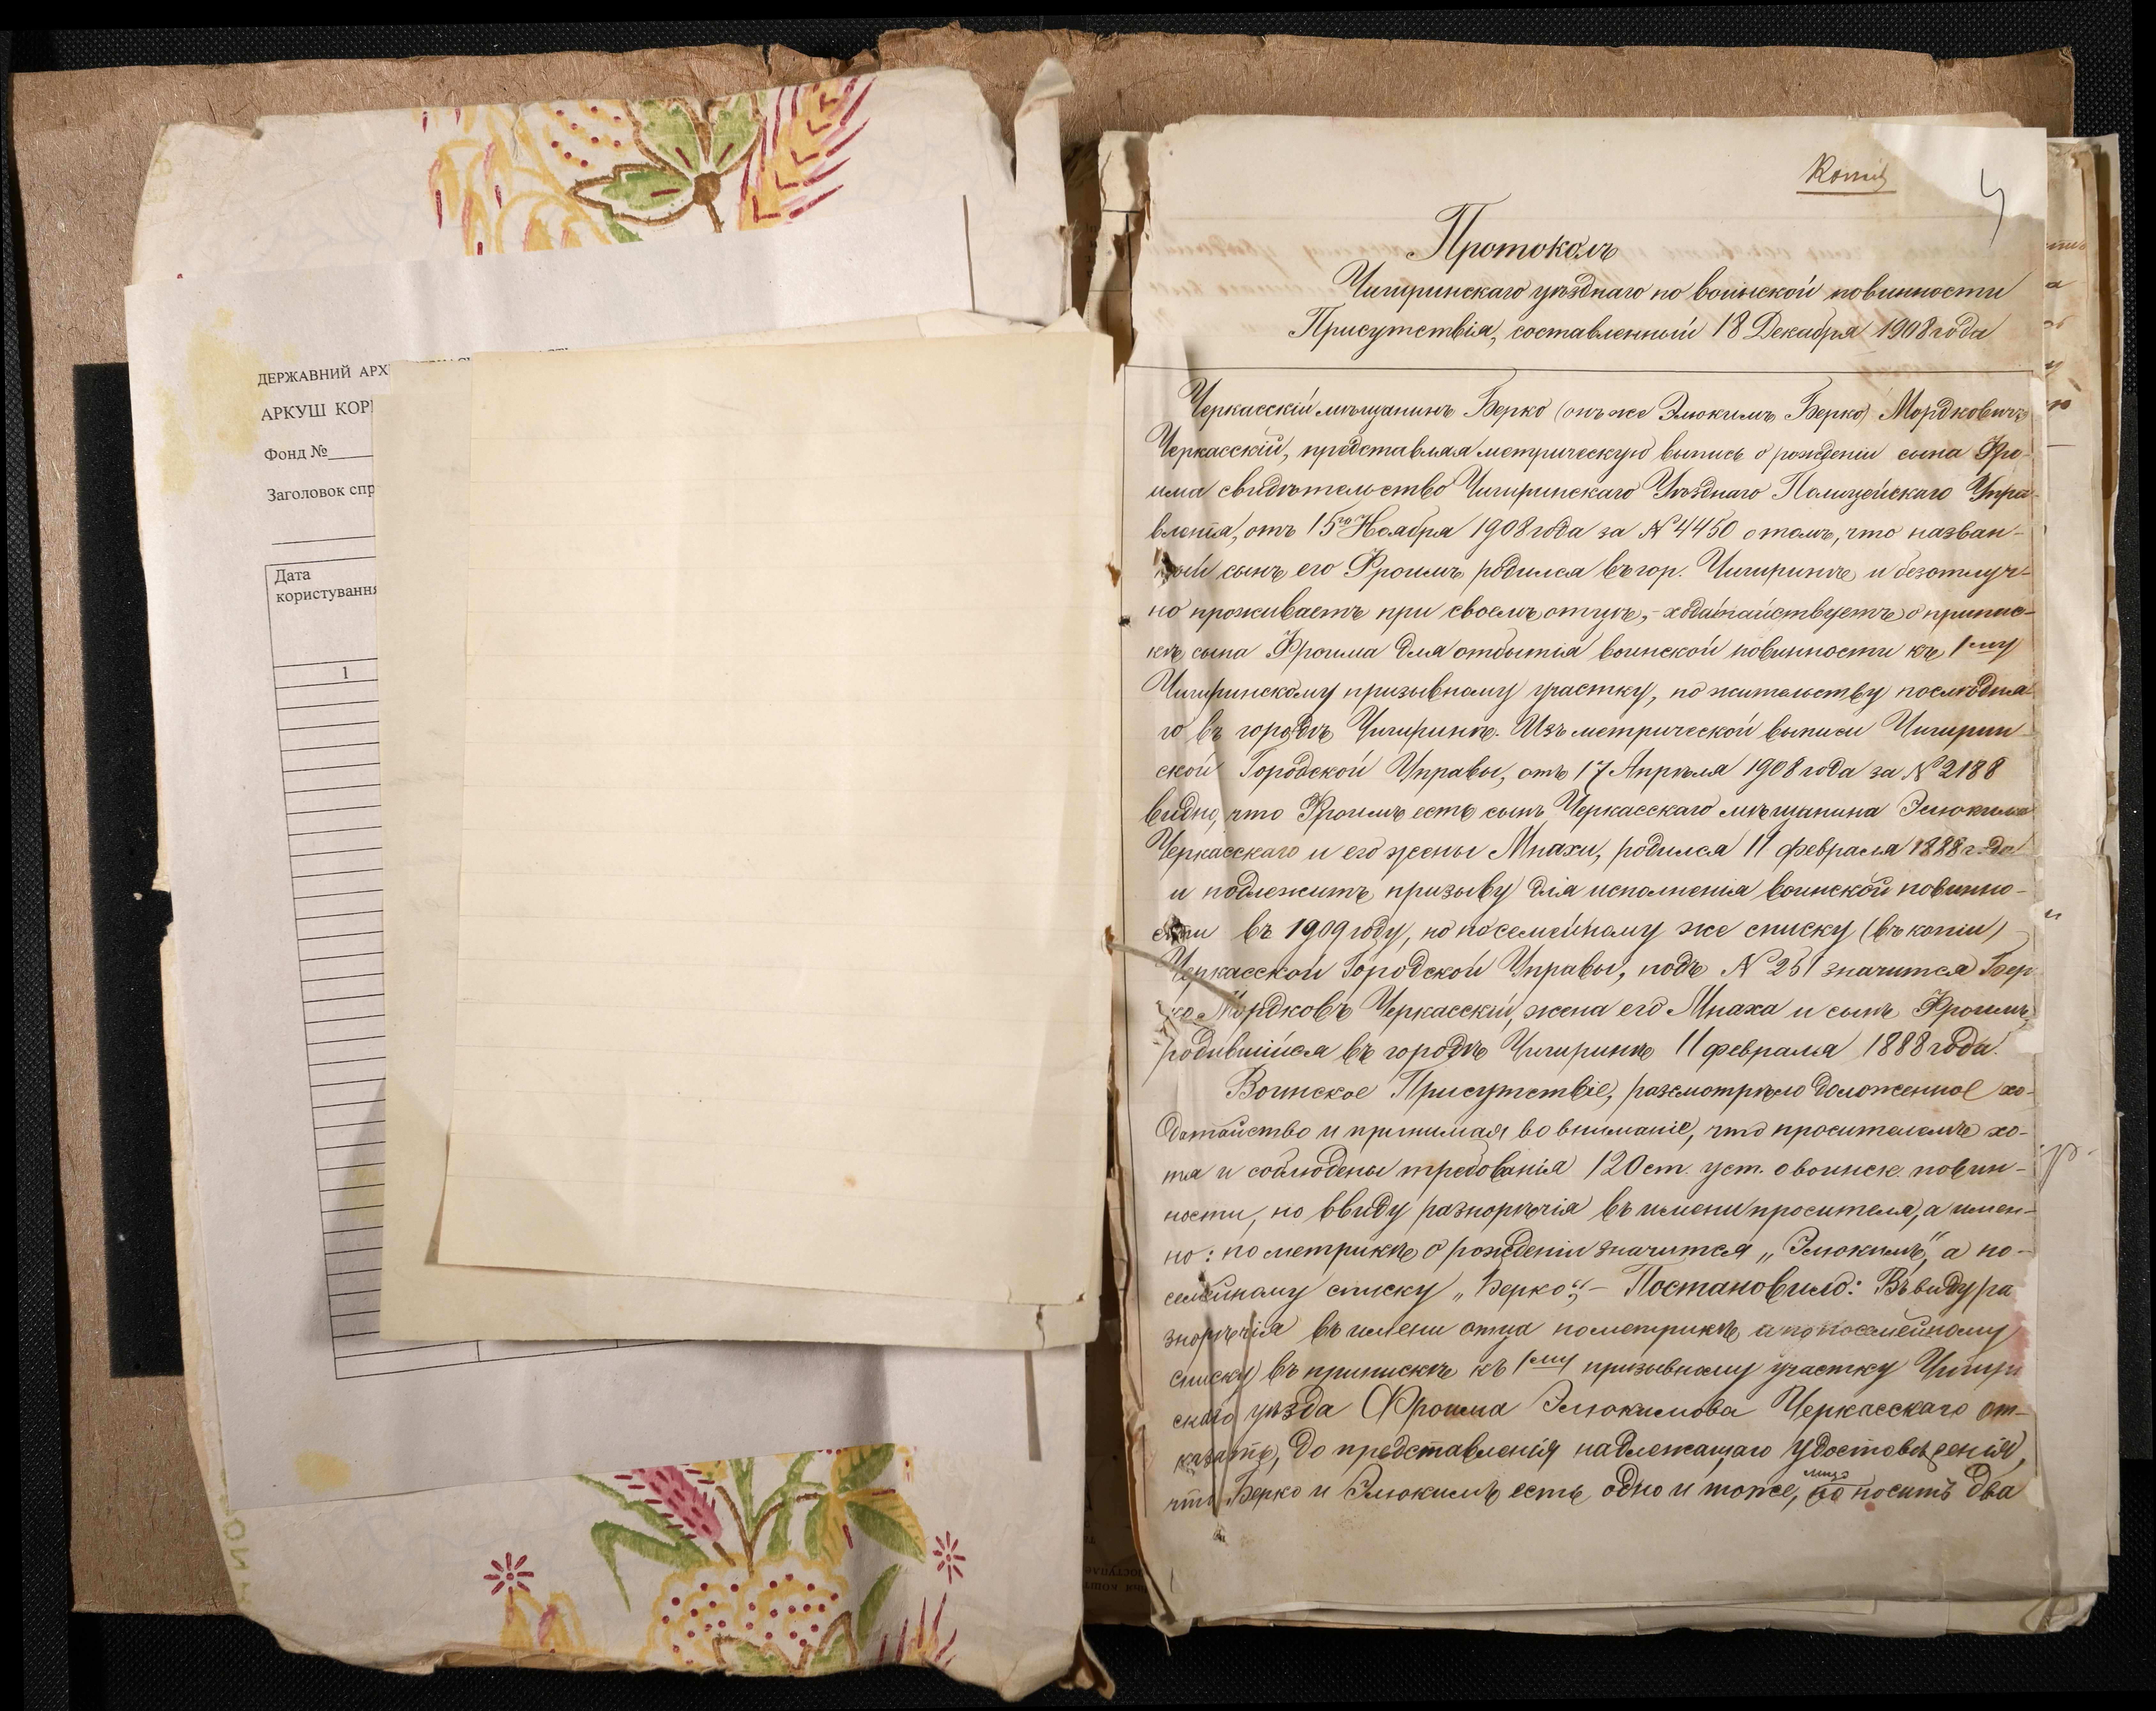 ДЕРЖАВНИЙ АРХ
АРКУШ КОР
Фонд №
Заголовок спр
Дата
користування
1
Копія
Протоколъ
Чигиринскаго уѣзднаго по воинской повинности
Присутствія, составленный 18 Декабря 1908 года
Черкасскій мѣщанинъ Берко (онъ же Элюкимъ Берко) Мордковичъ
Черкасскій, представляя метрическую выпись о рожденіи сына Фро-
има свидѣтельство Чигиринскаго Уѣзднаго Полицейскаго Упра-
вленія, отъ 15го Ноября 1908 года за № 4450 о томъ, что назван-
ный сынъ его Фроимъ родился въ гор. Чигиринѣ и безотлуч-
но проживаетъ при своемъ отцѣ,- ходатайствуетъ о припис-
кѣ сына Фроима для отбытія воинской повинности къ 1му
Чигиринскому призывному участку, по жительству послѣдня-
го въ городѣ Чигиринѣ. Изъ метрической выписи Чигирин-
ской Городской Управы, отъ 17 Апрѣля 1908 года за № 2188
видно, что Фроимъ есть сынъ Черкасскаго мѣщанина Элюкима
Черкасскаго и его жены Мнахи, родился 11 февраля 1888 года
и подлежитъ призыву для исполненія воинской повинно-
сти въ 1909 году, но по семейному же списку (въ копіи)
Черкасской Городской Управы, подъ № 251 значится Бер-
ко Мордковъ Черкасскій, жена его Мнаха и сынъ Фроимъ,
родившійся въ городѣ Чигиринѣ 11 февраля 1888 года.
Воинское Присутствіе, разсмотрѣло доложенное хо-
датайство и принимая во вниманіе, что просителемъ хо-
тя и соблюдены требованія 120 ст. уст. о воинск. повин-
ности, но ввиду разнорѣчія въ имени просителя, а имен-
но: по метрикѣ о рожденіи значится „Элюкимъ", а по-
семейному списку „Берко",- Постановило: Въ виду ра
знорѣчія въ имени отца по метрикѣ а по посемейному
списку въ припискѣ къ 1му призывному участку Чигири
скаго уѣзда Фроима Элюкимова Черкасскаго от-
казать, до представленія надлежащаго удостовѣренія,
что Берко и Элюкимъ есть одно и тоже, лицо но носитъ два